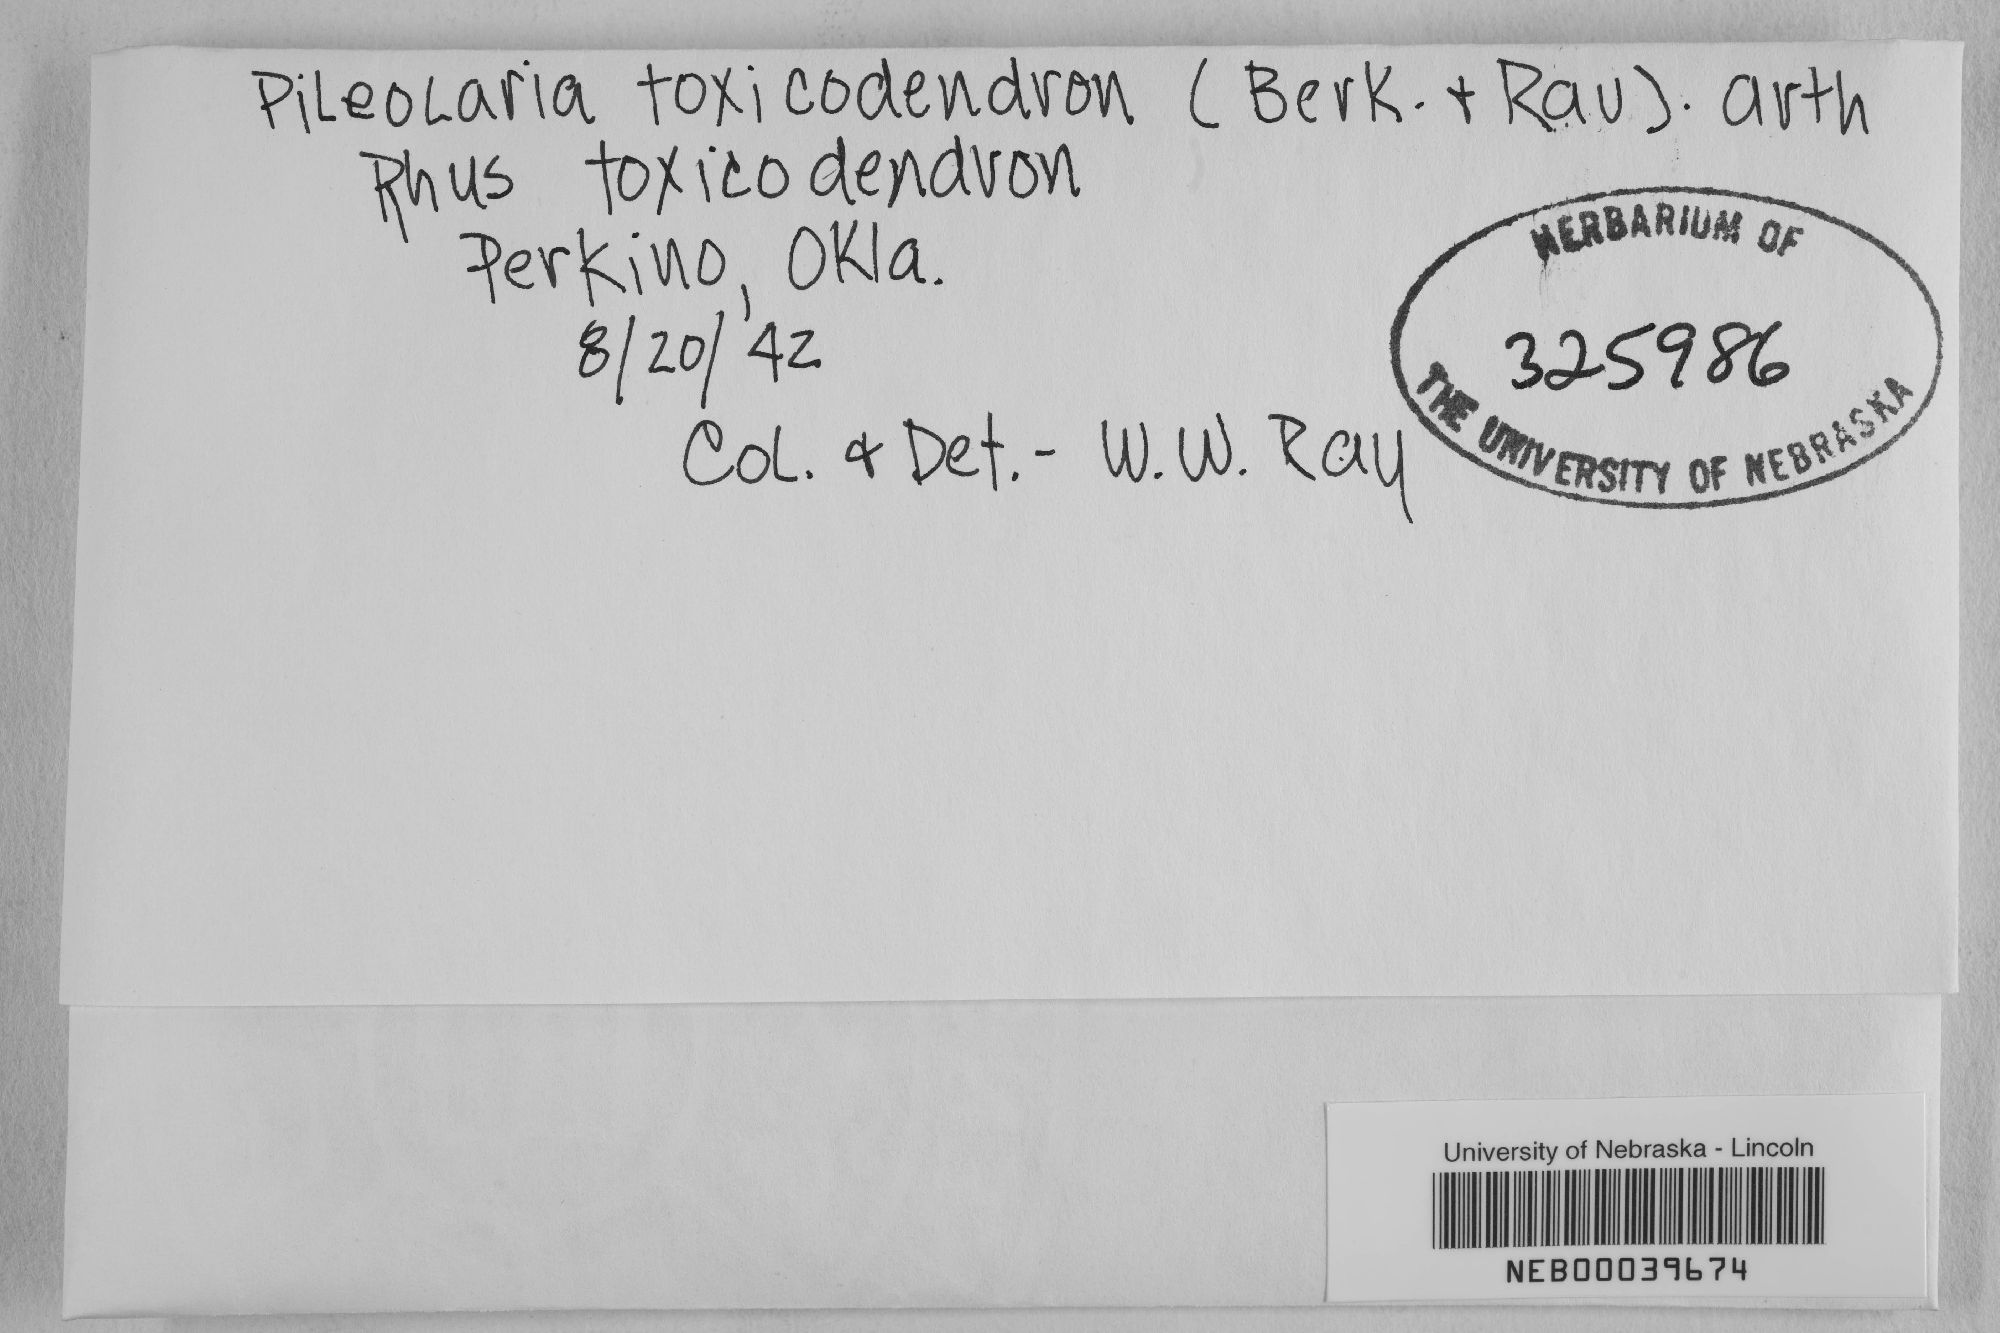 Pileolaria toxicodendron (Berk. + Rav). arth
Rhus toxicodendron
Perkino, Okla.
8/20/'42
Col. & Det. - W.W. Ray
HERBARIUM OF
325986
THE UNIVERSITY OF NEBRASKA
University of Nebraska - Lincoln
NEB00039674